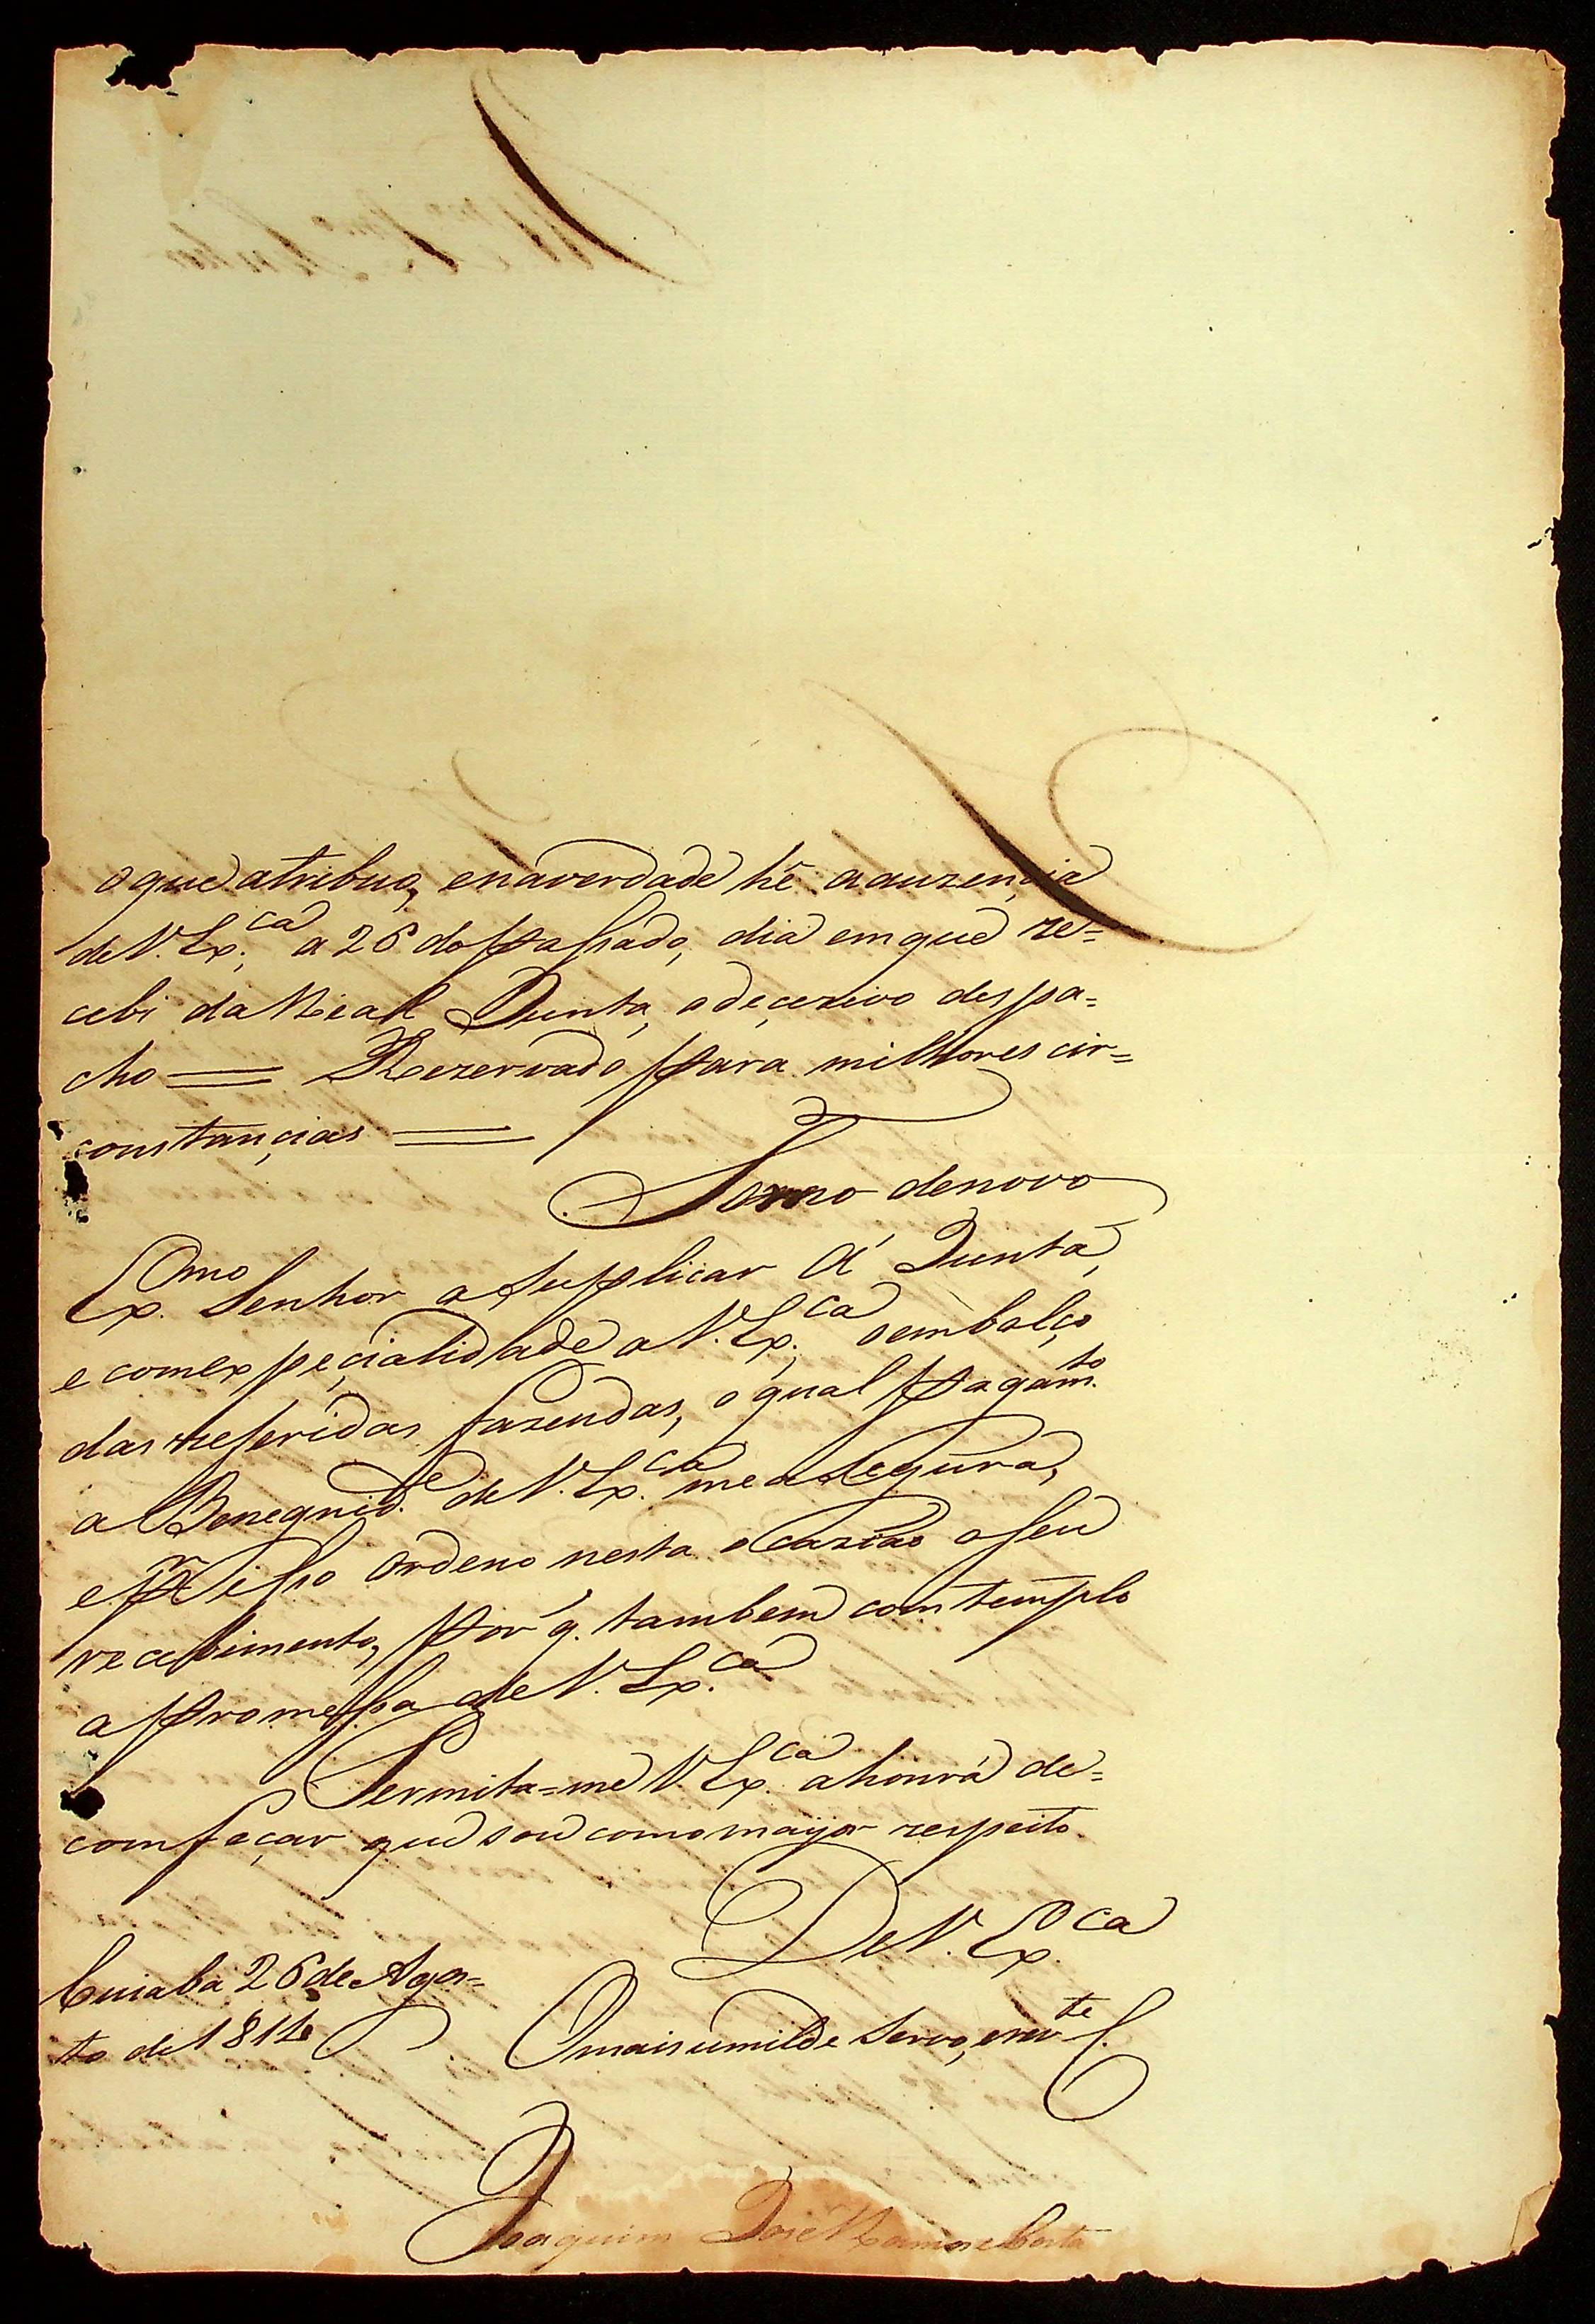 o que atribuo, enaverdade hé aauzencia
de V. Ex.ca a 26 do passado, dia emque re=
cebi da Real Junta, o deçezivo despa=
cho == Rezervado para milhores cir=
constançias ==
Torno denovo
Ex.mo Senhor a Suplicar á Junta,
e comexpeçialidade a V. Ex.ca o embolço
das referidas fazendas, o qual pagam.to
a Benegnid.e de V. Ex.ca me aSegura,
e p.r isso ordeno nesta ocazião o seu
recebimento, por q. tambem comtemplo
a promessa de V. Ex.ca
Permita=me V. Ex.ca ahonra de=
comfeçar que sou como mayor respeito
De V. Ex.ca
Cuiabá 26 de Agos=
to de 181
O mais umilde Servo, e rev.te C.
Joaquim José Ramos e Costa